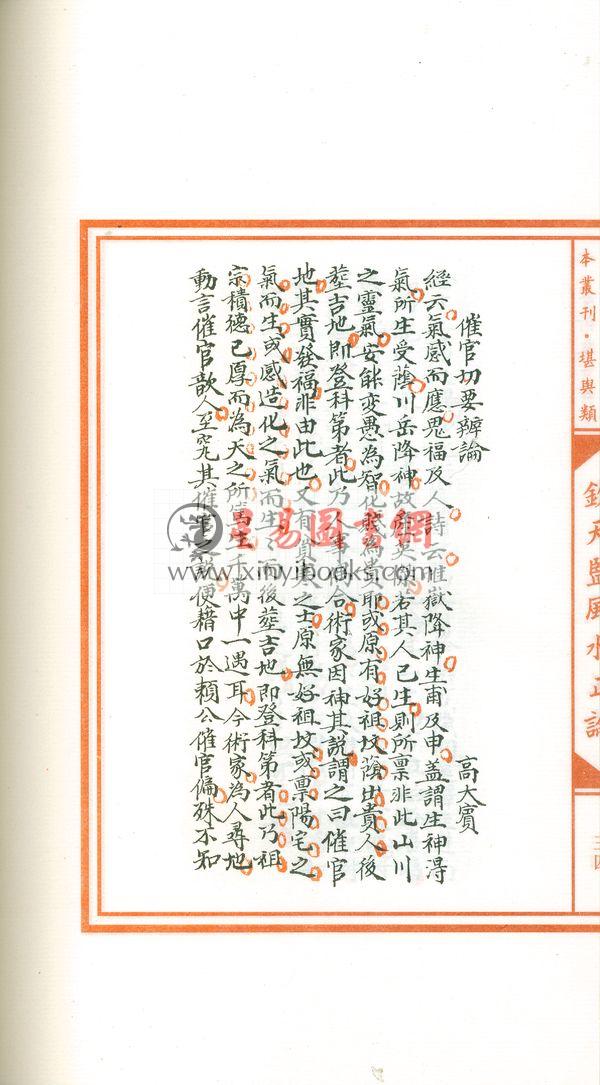 本叢刊·堪輿類
欽天監風水正論
三四
催官切要辯論
高大賓
經云氣感而應鬼福及人詩云惟嶽降神生甫及申蓋謂生神淂
氣所生受蔭川岳降神故 英 若其人已生則所禀非此山川
之靈氣安能变愚為智化賤為貴耶或原有好祖坟蔭出貴人後
塟吉地即登科第者此乃人事 合術家因神其説謂之曰催官
地其實發福非由此也又有貧寒之士原無好祖坟或禀陽宅之
氣而生或感造化之氣而生々而後塟吉地即登科第者此乃祖
宗積德已厚而為天之所篤生千萬中一遇耳今術家為人尋地
動言催官歆人至究其催官之說便藉口於頼公催官偏殊不知
星易圖書網
www.xinyibooks.com